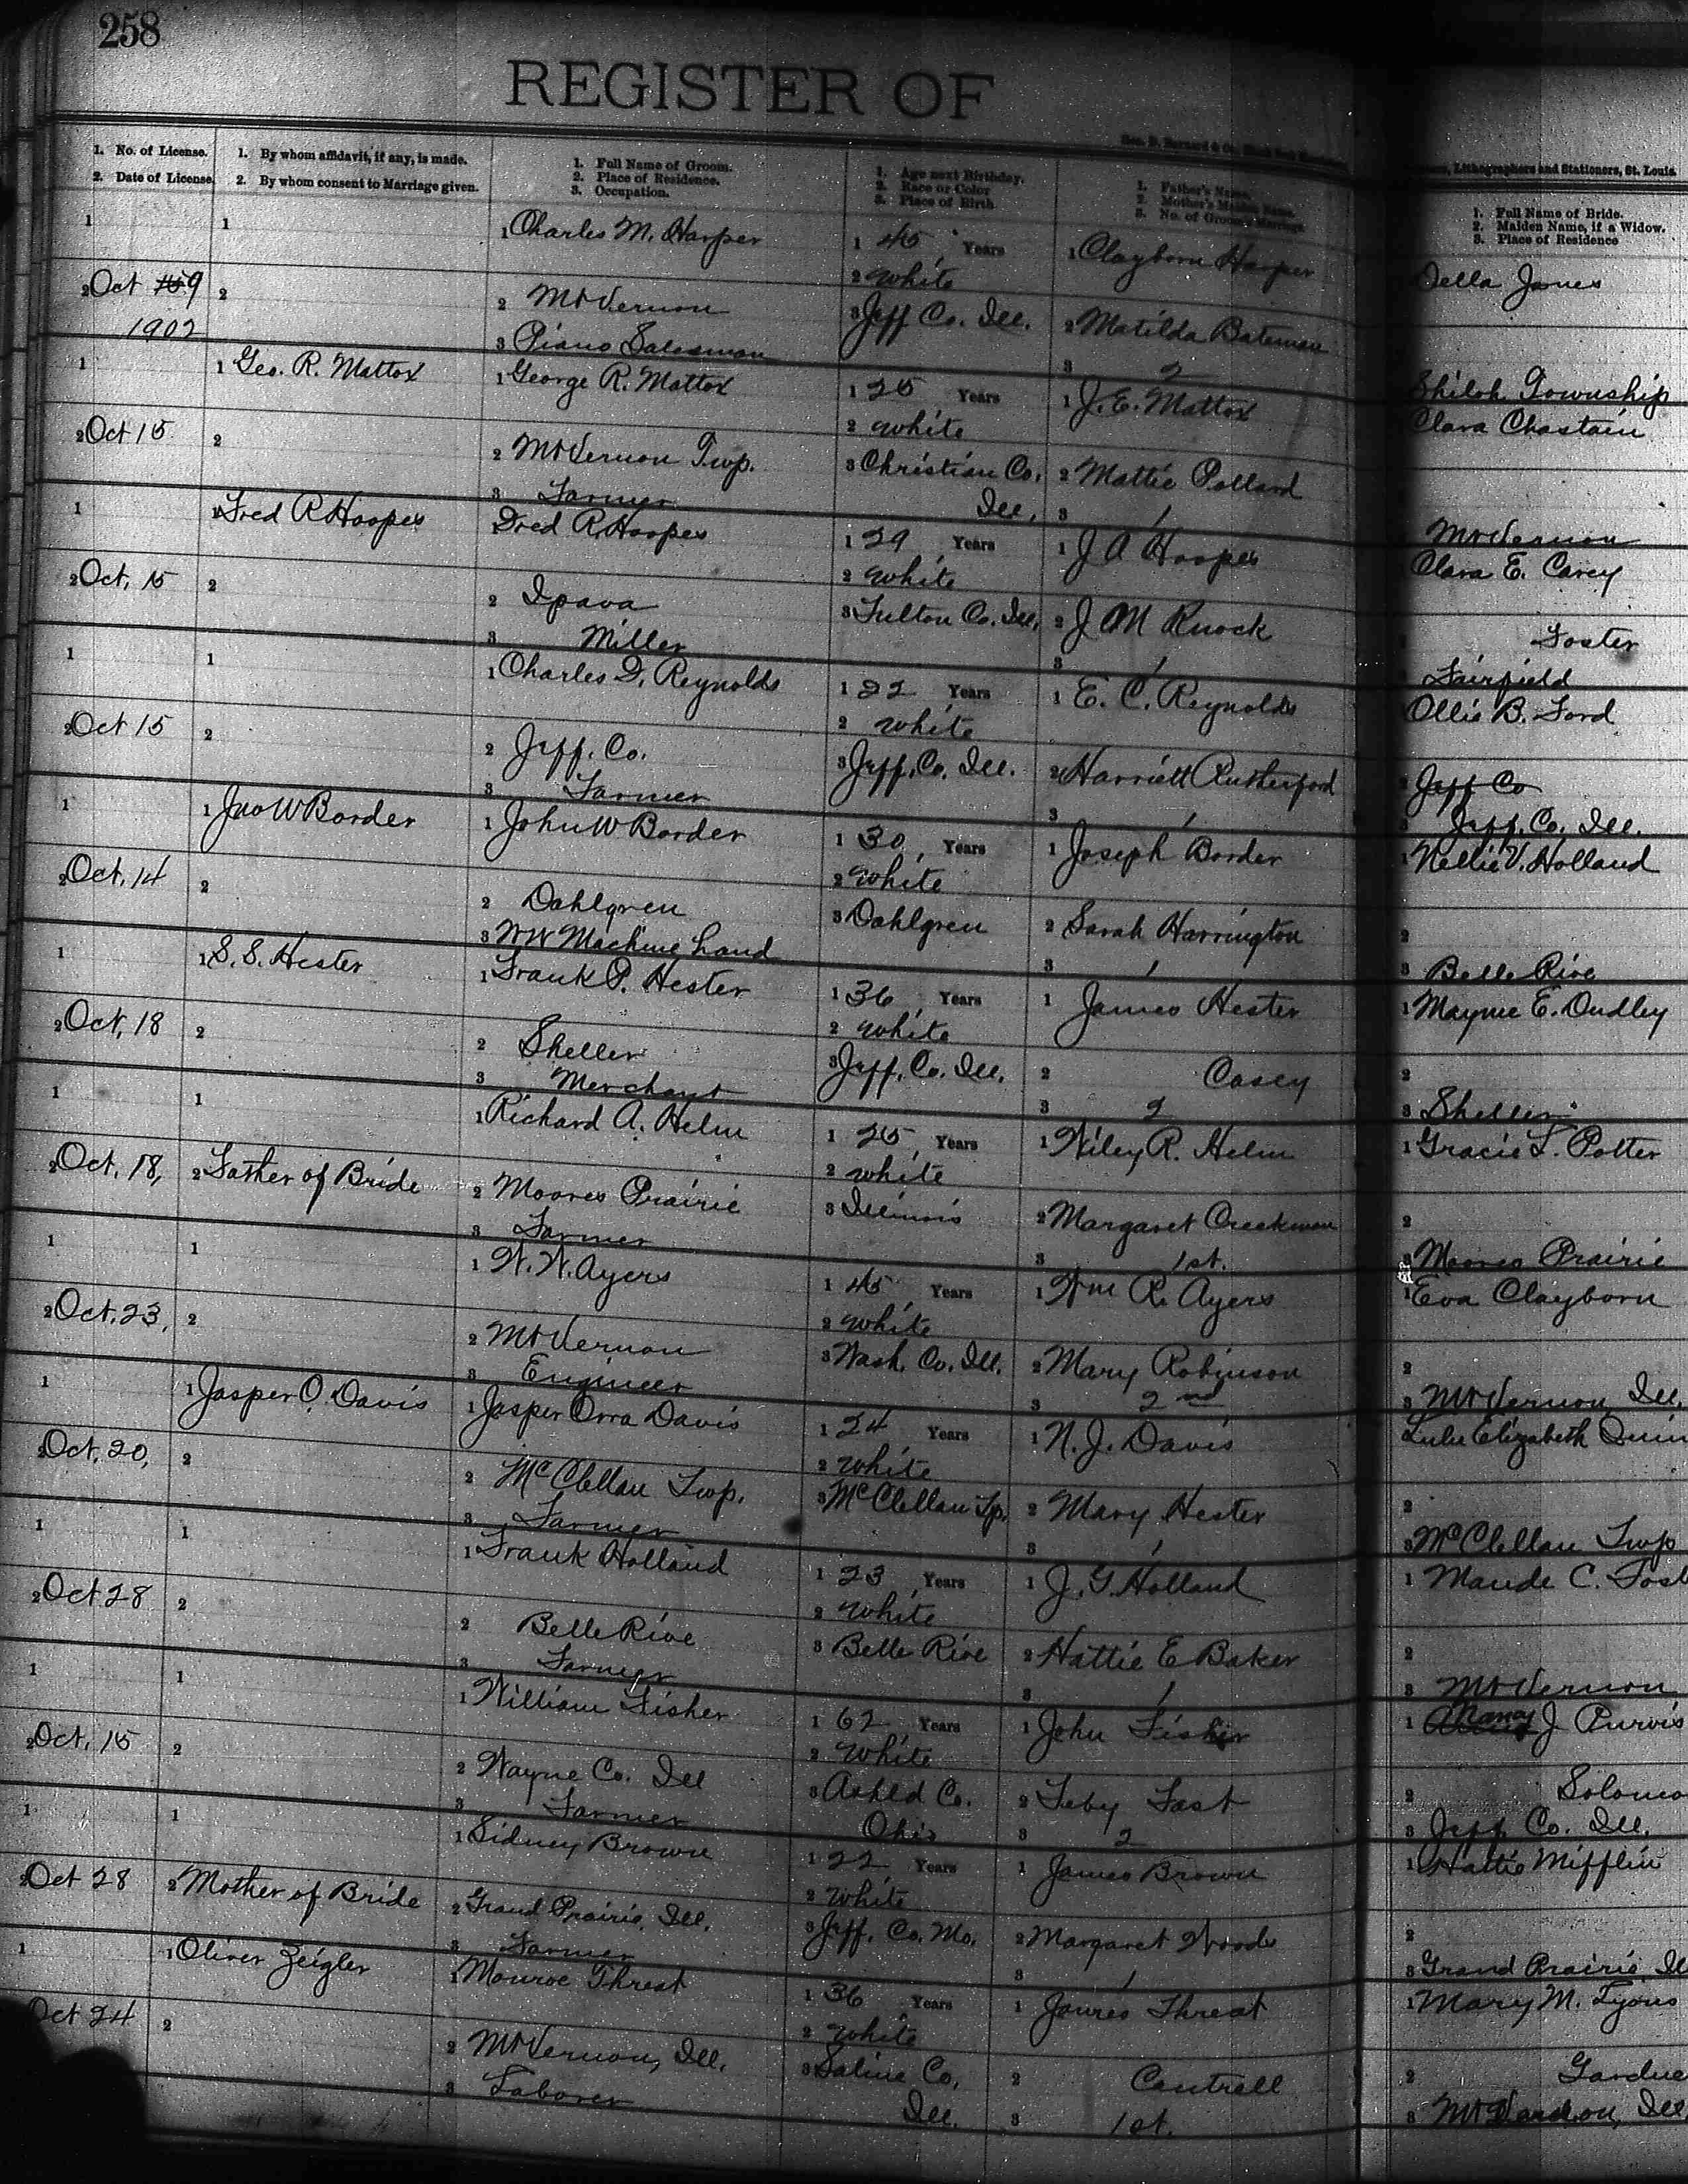 258
REGISTER OF
1. No. of License.
2. Date of License.
1. By whom affidavit, if any, is made.
2. By whom consent to Marriage given.
1. Full Name of Groom.
2. Place of Residence.
3. Occupation.
1. Age next Birthday.
2. Race or Color
3. Place of Birth
1. Father's Name.
2. Mother's Maiden Name.
3. No. of Groom's Marriage.
Lithographers and Stationers, St. Louis.
1. Full Name of Bride.
2. Maiden Name, if a Widow.
3. Place of Residence
1
1
1 Charles M. Harper
1 45 Years
1 Clayborn Harper
Della Jones
2 Oct 9
1902
2
2 Mt Vernon
3 Piano Salesman
2 White
3 Jeff Co. Ill.
2 Matilda Bateman
3 2
Shiloh Township
1
1 Geo. R. Mattox
1 George R. Mattox
1 25 Years
1 J. E. Mattox
Clara Chastain
2 Oct 15
2
2 Mt Vernon Twp.
3 Farmer
2 White
3 Christian Co.
Ill.
2 Mattie Pollard
3 1
Mt Vernon
1
1 Fred R Hoopes
1 Fred R Hoopes
1 29 Years
1 J A Hoopes
Clara E. Carey
2 Oct. 15
2
2 Ipava
3 Miller
2 White
3 Fulton Co. Ill.
2 J M Knock
3 1
Foster
Fairfield
1
1
1 Charles D. Reynolds
1 22 Years
1 E. C. Reynolds
Ollie B. Ford
2 Oct 15
2
2 Jeff. Co.
3 Farmer
2 White
3 Jeff. Co. Ill.
2 Harriett Rutherford
3 1
Jeff Co
3 Jeff. Co. Ill.
1
1 Jno W Border
1 John W Border
1 30 Years
1 Joseph Border
1 Nellie V. Holland
2 Oct. 14
2
2 Dahlgren
3 WW Machine hand
2 White
3 Dahlgren
2 Sarah Harrington
3 1
2
3 Belle Rive
1
1 S. S. Hester
1 Frank P. Hester
1 36 Years
1 James Hester
1 Mayme E. Dudley
2 Oct. 18
2
2 Sheller
3 Merchant
2 White
3 Jeff. Co. Ill.
2 Casey
3 2
2
3 Sheller
1
1
1 Richard A. Helm
1 25 Years
1 Wiley R. Helm
1 Gracie L. Potter
2 Oct. 18,
2 Father of Bride
2 Moores Prairie
3 Farmer
2 White
3 Illinois
2 Margaret Creekmon
3 1st.
2
3 Moores Prairie
1
1
1 W. W. Ayers
1 45 Years
1 Wm R. Ayers
1 Eva Clayborn
2 Oct. 23,
2
2 Mt Vernon
3 Engineer
2 White
3 Wash. Co. Ill.
2 Mary Robinson
3 2nd
2
3 Mt Vernon, Ill.
1
1 Jasper O. Davis
1 Jasper Orra Davis
1 24 Years
1 N. J. Davis
Lulu Elizabeth Quin
2 Oct. 20,
2
2 McClellan Twp.
3 Farmer
2 White
3 McClellan Tp.
2 Mary Hester
3 1
2
3 McClellan Twp
1
1
1 Frank Holland
1 23 Years
1 J. G. Holland
1 Maude C. Fost
2 Oct 28
2
2 Belle Rive
3 Farmer
2 White
3 Belle Rive
2 Hattie E Baker
3 1
2
3 Mt Vernon
1
1
1 William Fisher
1 62 Years
1 John Fisher
1 Nancy J Purvis
2 Oct. 15
2
2 Wayne Co. Ill
3 Farmer
2 White
3 Ashld Co.
Ohio
2 Feby Fast
3 2
2 Solomo
3 Jeff. Co. Ill.
1
1
1 Sidney Brown
1 22 Years
1 James Brown
1 Hattie Mifflin
2 Oct 28
2 Mother of Bride
2 Grand Prairie, Ill.
3 Farmer
2 White
3 Jeff. Co. Mo.
2 Margaret Woods
3 1
2
3 Grand Prairie, Il
1
1 Oliver Zeigler
1 Monroe Threat
1 36 Years
1 James Threat
1 Mary M. Lyons
Oct 24
2
2 Mt Vernon, Ill.
3 Laborer
2 White
3 Saline Co.
Ill.
2 Cantrell
3 1st.
2 Gardne
3 Mt Vernon, Ill.